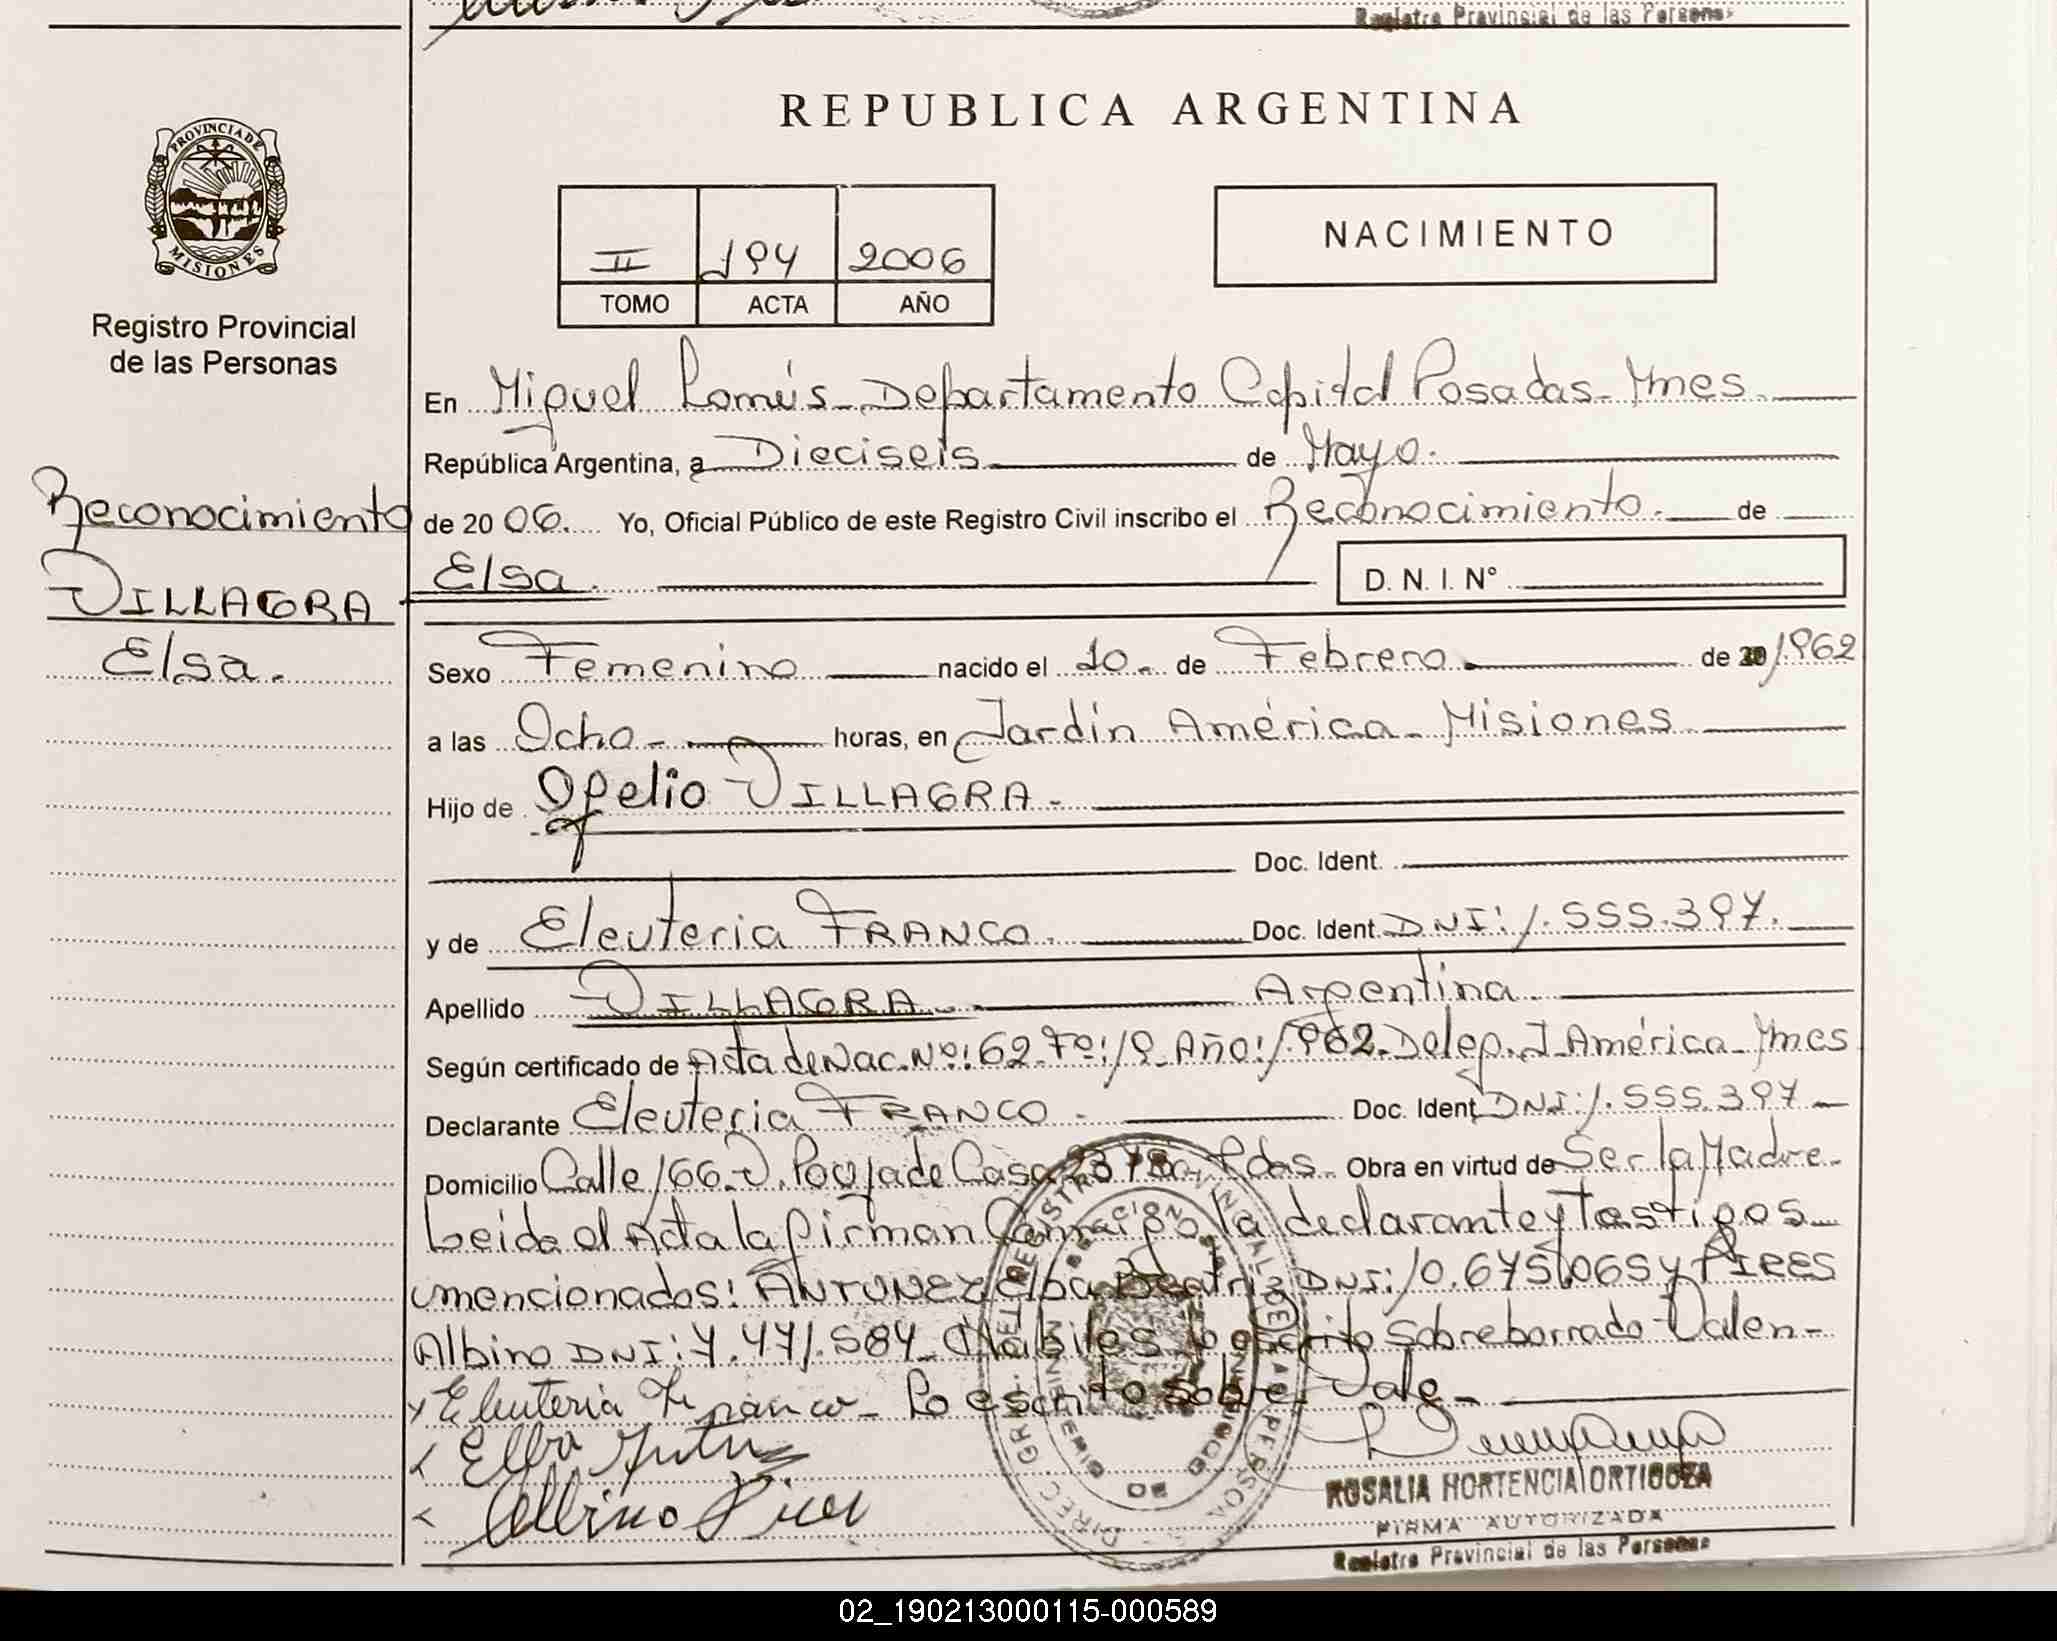 Registro Provincial de las Personas
REPUBLICA ARGENTINA
PROVINCIA DE
MISIONES
Registro Provincial
de las Personas
II 194 2006
TOMO ACTA AÑO
NACIMIENTO
En Miguel Lanús - Departamento Capital Posadas - Mnes.
República Argentina, a Dieciseis de Mayo.
Reconocimiento
de 20 06. Yo, Oficial Público de este Registro Civil inscribo el Reconocimiento. de
VILLAGRA
Elsa.
Elsa.
D. N. I. N°
Sexo Femenino nacido el 10. de Febrero de 20 1962
a las Ocho - horas, en Jardín América - Misiones
Hijo de Ofelio VILLAGRA -
Doc. Ident.
y de Eleuteria FRANCO. Doc. Ident. DNI: 1.555.397.
Apellido VILLAGRA - Argentina
Según certificado de Acta de Nac. Nº: 62 - Fº: 19 - Año: 1962 - Deleg. J. América - Mnes
Declarante Eleuteria FRANCO - Doc. Ident DNI: 1.555.397
Domicilio Calle 166 - V. Poujade Casa - Pdas - Obra en virtud de Ser la Madre -
Leida el Acta la firman Conmigo la declarante y Testigos
mencionados: ANTUNEZ Elba Beatriz DNI: 10.675.065 y PIRES
Albino DNI: 7.471.584 - Habiles - Lo escrito sobreborrado - Valen -
Eleuteria Franco - Lo escrito sobre - Vale -
Elba
Albino
ROSALIA HORTENCIA ORTIGOZA
FIRMA AUTORIZADA
Registro Provincial de las Personas
02_190213000115-000589